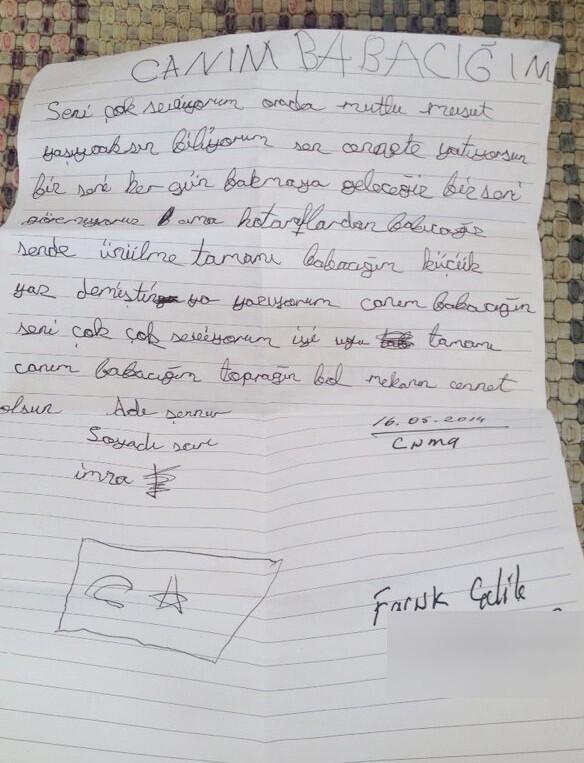 CANIM BABACIĞIM
Seni çok seviyorum orada mutlu mesut
yaşıyacaksın biliyorum sen cennete yatıyorsun
biz seni her gün bakmaya geleceğiz biz seni
göremiyoruz ama fotaraflardan bakıcağız
sende üzülme tamamı babacığım küçük
yaz demiştin ya yazıyorum canım babacığım
seni çok çok seviyorum iyi uyu tamamı
canım babacığım toprağın bol mekanın cennet
olsun Adı şennur
Soyadı
imza
16.05.2014
CUMA
Faruk Çelik